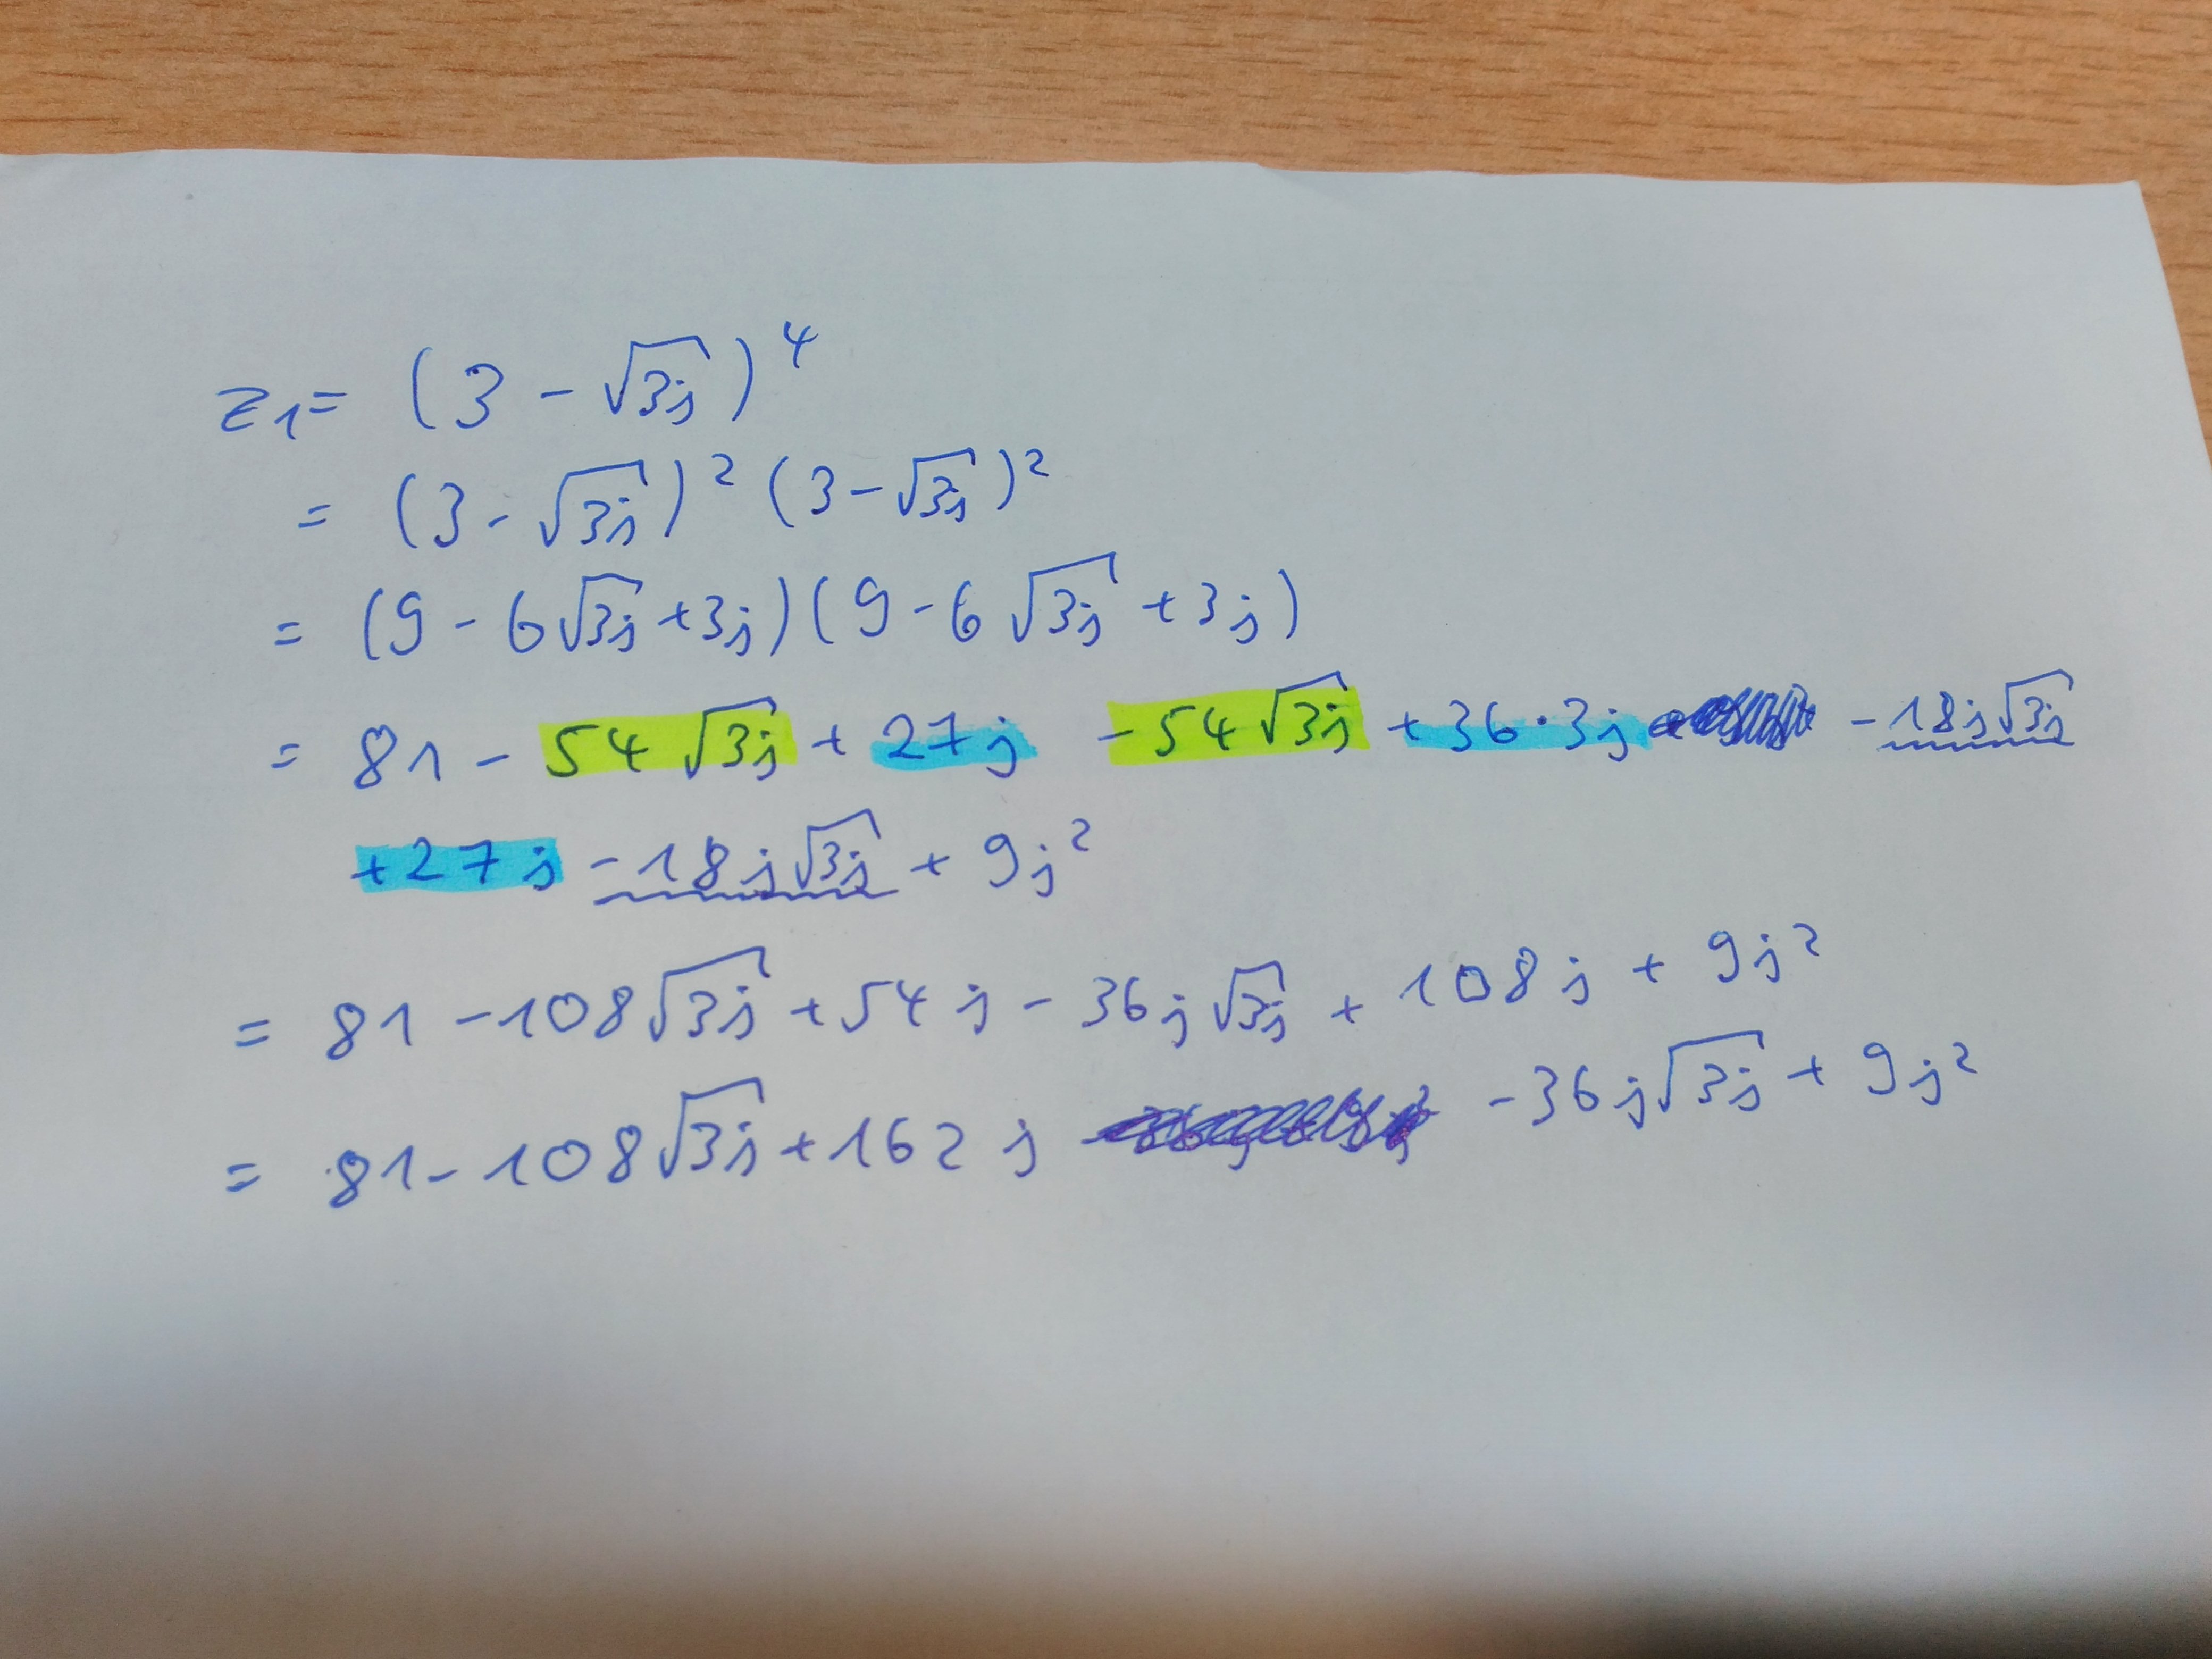 z₁ = (3 - √(3j))⁴
= (3 - √(3j))² (3 - √(3j))²
= (9 - 6√(3j) + 3j)(9 - 6√(3j) + 3j)
= 81 - 54√(3j) + 27j - 54√(3j) + 36·3j - 18j√(3j)
+27j - 18j√(3j) + 9j²
= 81 - 108√(3j) + 54j - 36j√(3j) + 108j + 9j²
= 81 - 108√(3j) + 162j - 36j√(3j) + 9j²